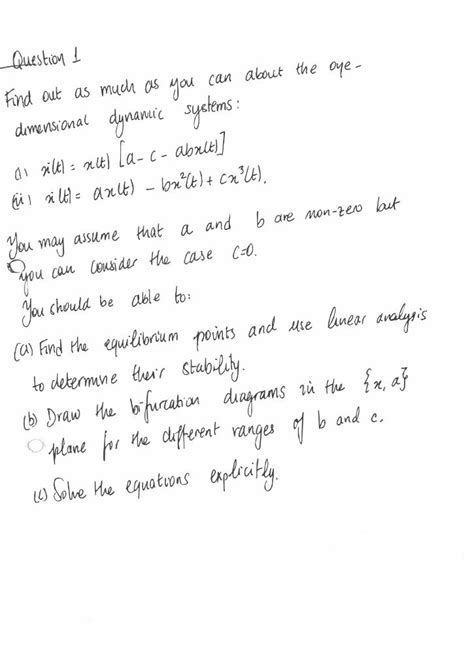 Question 1
Find out as much as you can about the one-
dimensional dynamic systems:
(i) ẋ(t) = x(t) [a - c - abx(t)]
(ii) ẋ(t) = ax(t) - bx²(t) + cx³(t).
You may assume that a and b are non-zero but
you can consider the case c=0.
You should be able to:
(a) Find the equilibrium points and use linear analysis
to determine their stability.
(b) Draw the bifurcation diagrams in the {x, a}
plane for the different ranges of b and c.
(c) Solve the equations explicitly.